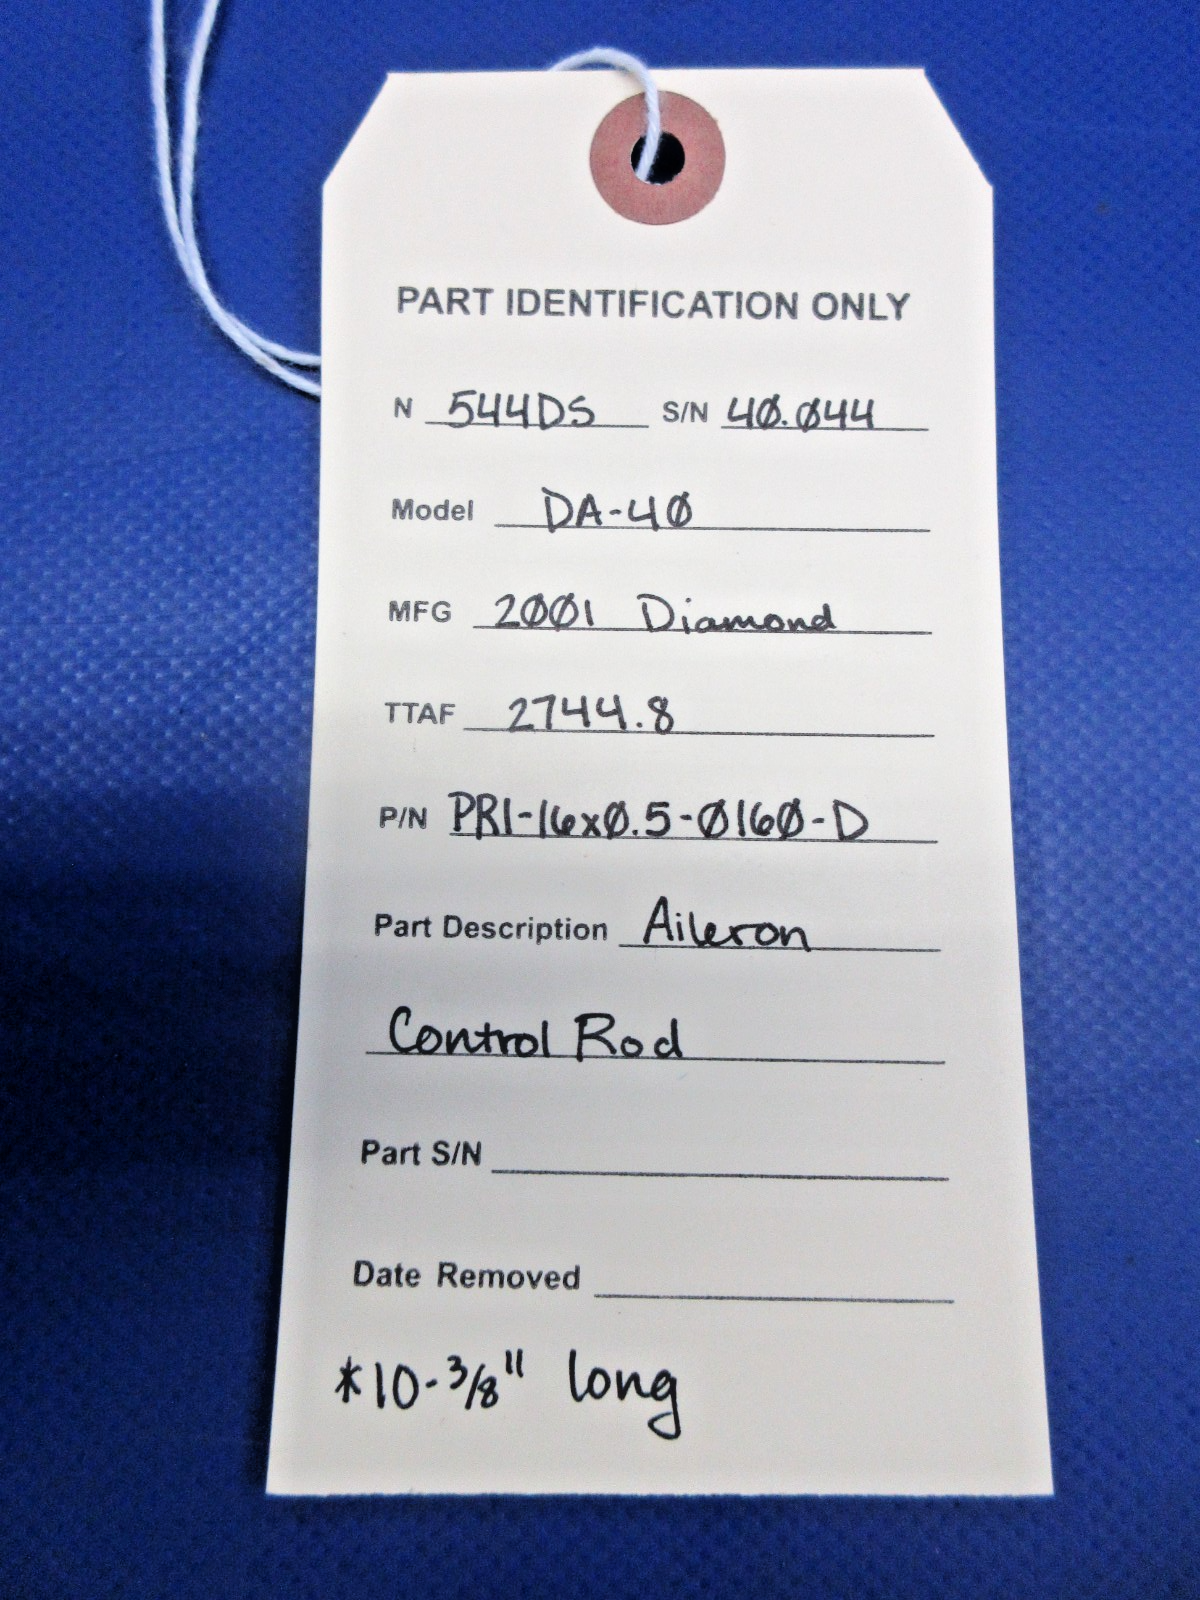 PART IDENTIFICATION ONLY
N 544DS S/N 40.044
Model DA-40
MFG 2001 Diamond
TTAF 2744.8
P/N PR1-16x0.5-0160-D
Part Description Aileron
Control Rod
Part S/N
Date Removed
*10-3/8" long